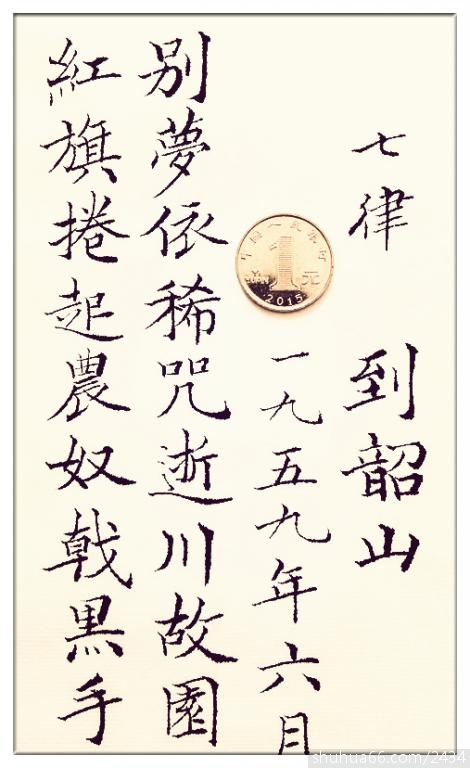 七律 到韶山
一九五九年六月
别夢依稀咒逝川故園
紅旗捲起農奴戟黑手
中国人民银行
1元
2015
shuhua66.com/2434